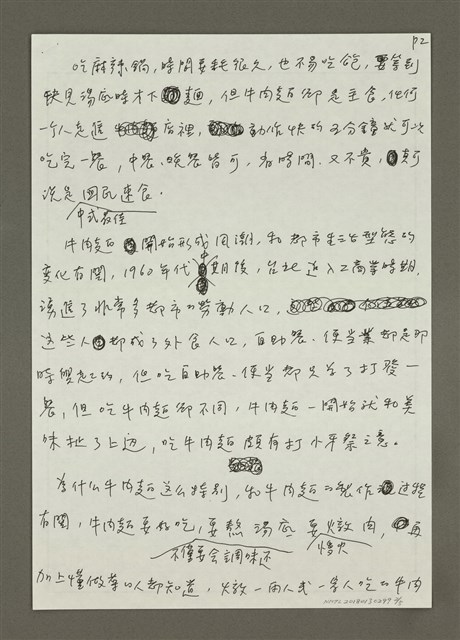 P2
吃麻辣鍋，時間要耗很久，也不易吃飽，要等到
快見湯底時才下麵，但牛肉麵卻是主食，任何
一個人走進店裡，動作快的五分鐘就可以
吃完一餐，中餐、晚餐皆可，省時間，又不貴，真可
說是國民速食。
中式最佳
牛肉麵開始形成風潮，和都市生活型態的
變化有關，1960年代中期後，台北進入工商業時期，
湧進了非常多都市的勞動人口，
這些人都成了外食人口，自助餐、便當業都是那
時興起的，但吃自助餐、便當都只為了打發一
餐，但吃牛肉麵卻不同，牛肉麵一開始就和美
味扯了上邊，吃牛肉麵頗有打小牙祭之意。
為什么牛肉麵這么特別，和牛肉麵的製作過程
有關，牛肉麵要好吃，要熬湯底要燉肉，再
不僅要會調味還 惜火
加上懂做菜的人都知道，燉一兩人或一家人吃的牛肉
NMTL 20180130297